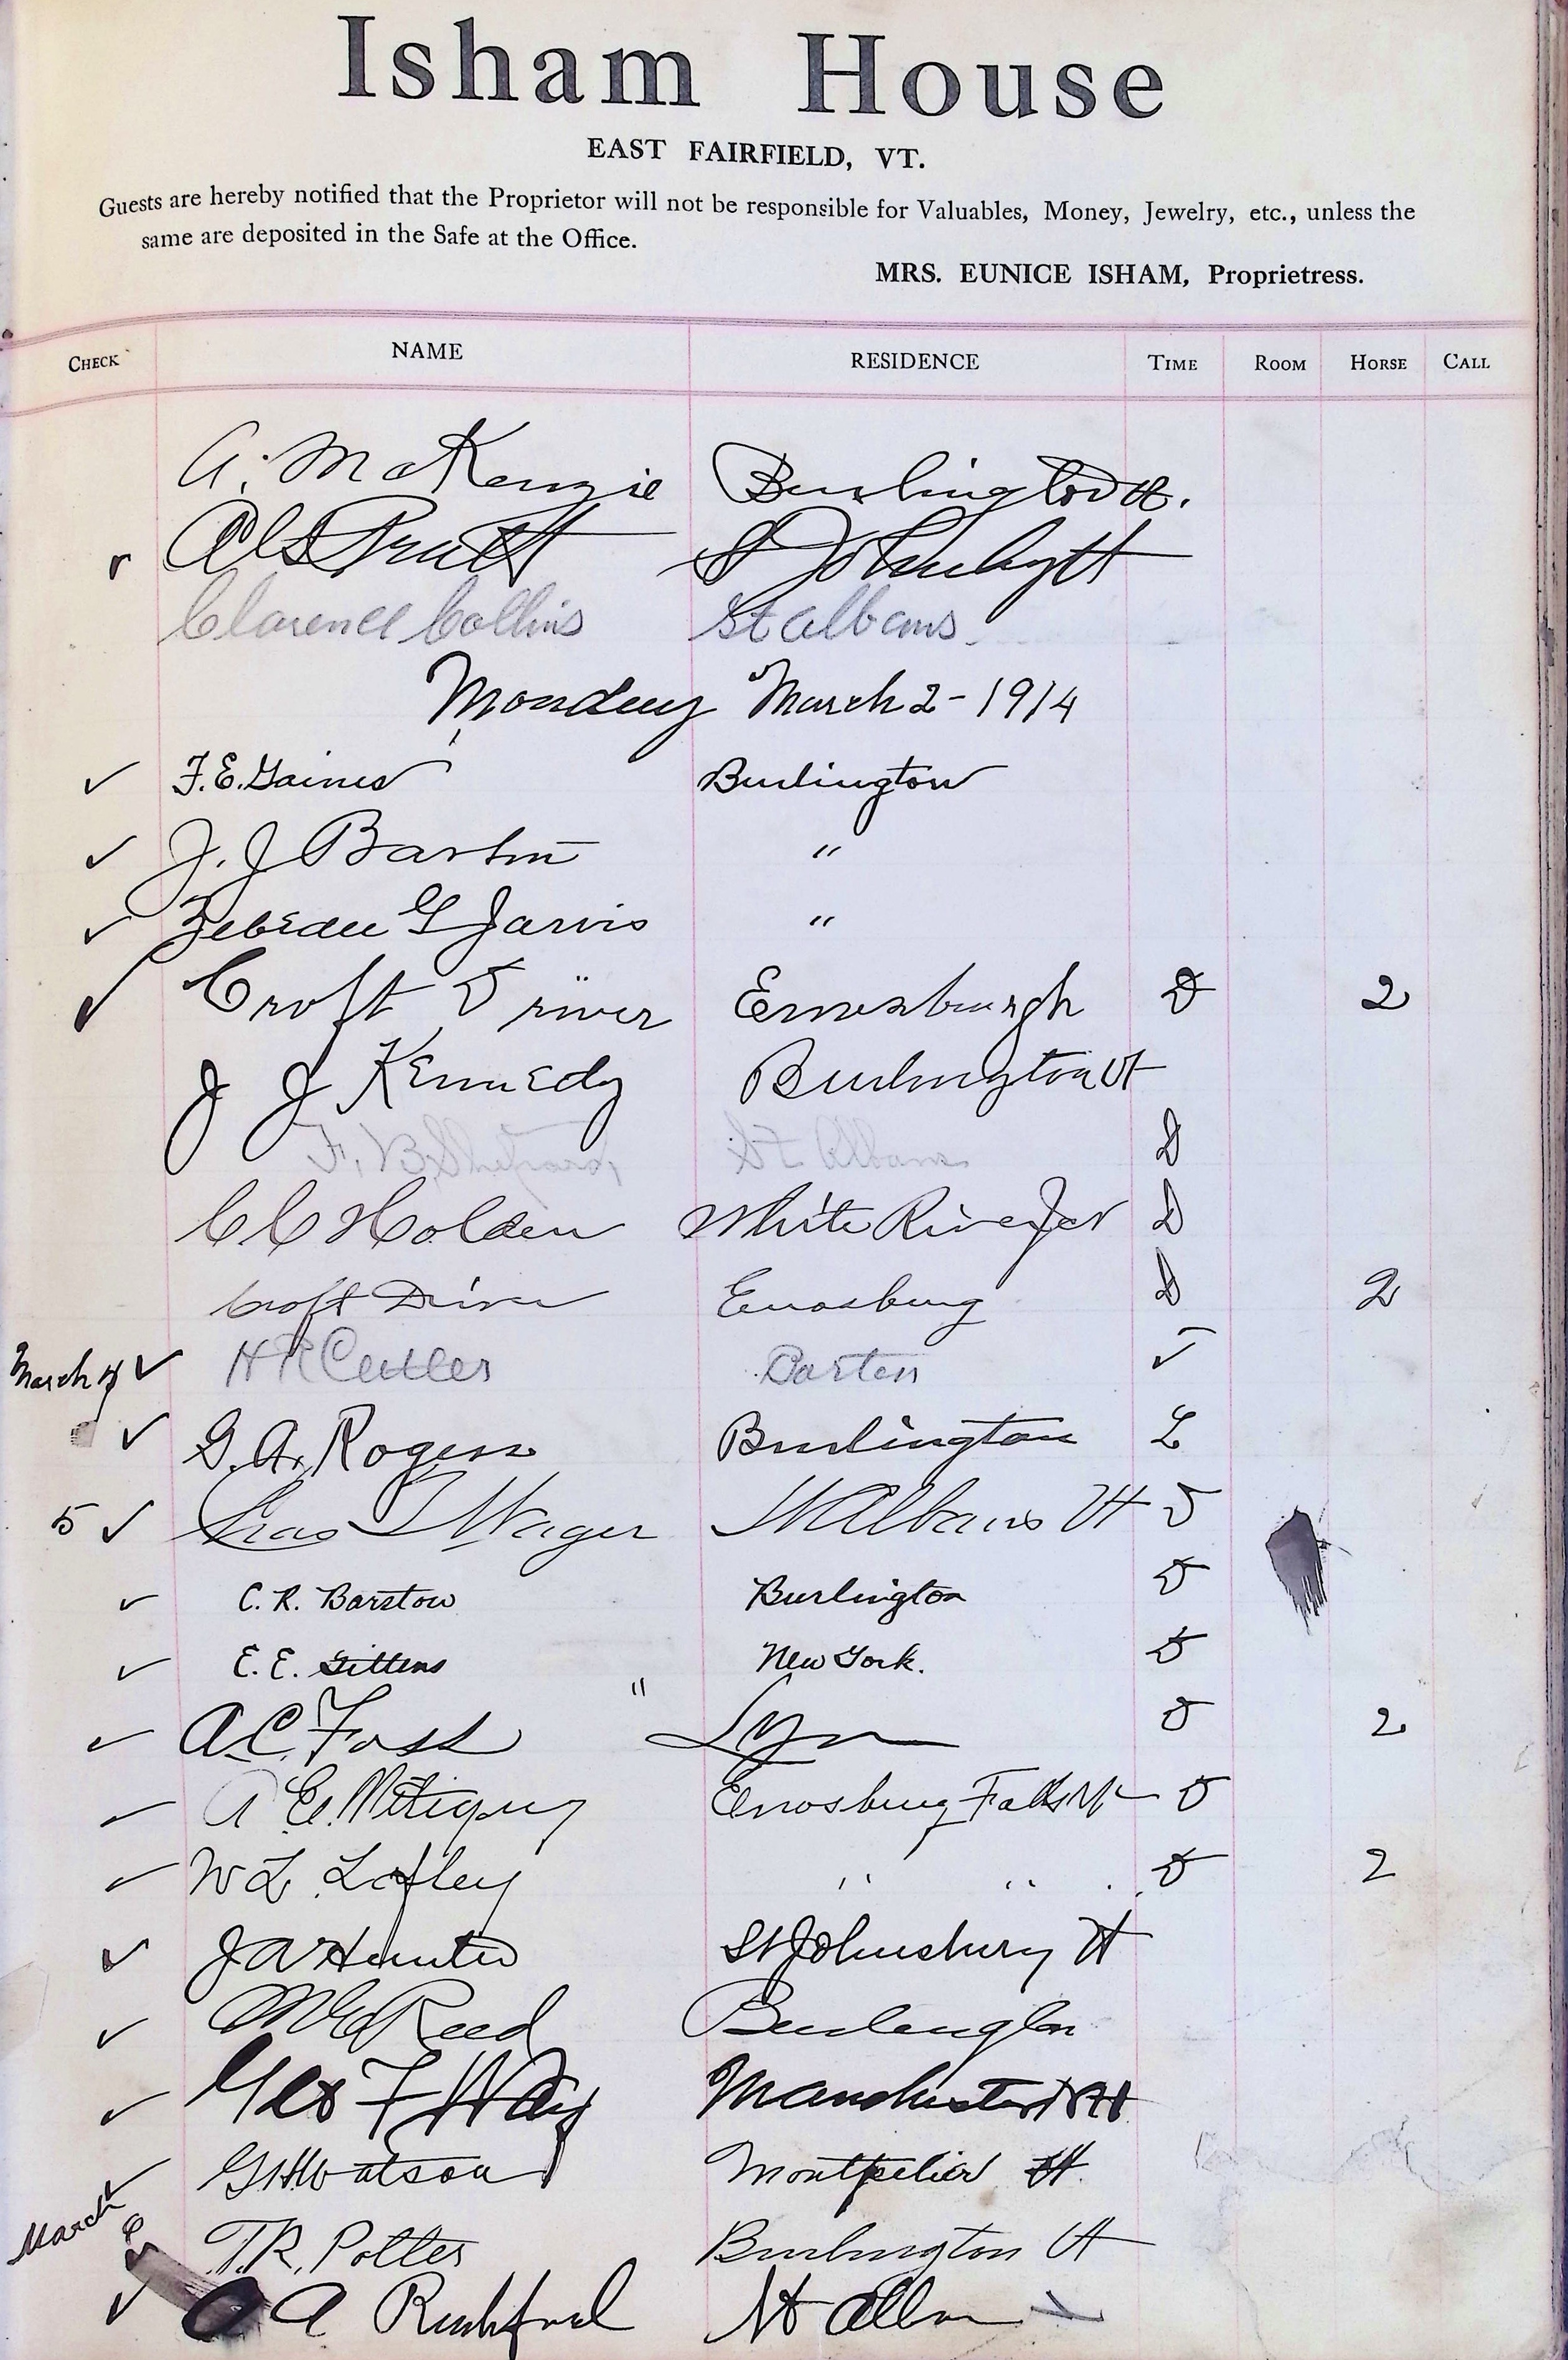 Isham House
EAST FAIRFIELD, VT.
Guests are hereby notified that the Proprietor will not be responsible for Valuables, Money, Jewelry, etc., unless the
same are deposited in the Safe at the Office.
MRS. EUNICE ISHAM, Proprietress.
CHECK NAME RESIDENCE TIME ROOM HORSE CALL
A. McKenzie Burlington Vt.
Pratt St Johnsby Vt
Clarence Collins St Albans
Monday March 2 - 1914
✓ F. E. Gaines Burlington
✓ J. J Barton "
✓ Zebedee G Jarvis "
✓ Croft Driver Enosburgh D 2
J J Kennedy Burlington Vt
F. B. Shepard, St Albans D
C C Holden White River Jct D
Croft Driver Enosburg D 2
March 4 ✓ H R Cutler Barton ✓
✓ G. A. Rogers Burlington L
5 ✓ Chas Wager St Albans Vt D
✓ C. R. Barstow Burlington D
✓ E. E. Gittens New York. D
✓ A. C. Foss " Lyn D 2
✓ A E. Enosburg Falls Vt D
✓ W L. Lafley " " D 2
✓ J A Hunter St Johnsbury Vt
✓ Reed Burlington
✓ Geo F Way Manchester NH
✓ G H Watson Montpelier Vt.
March 6 ✓ T. R. Potter Burlington Vt
✓ A Rushford St Alban